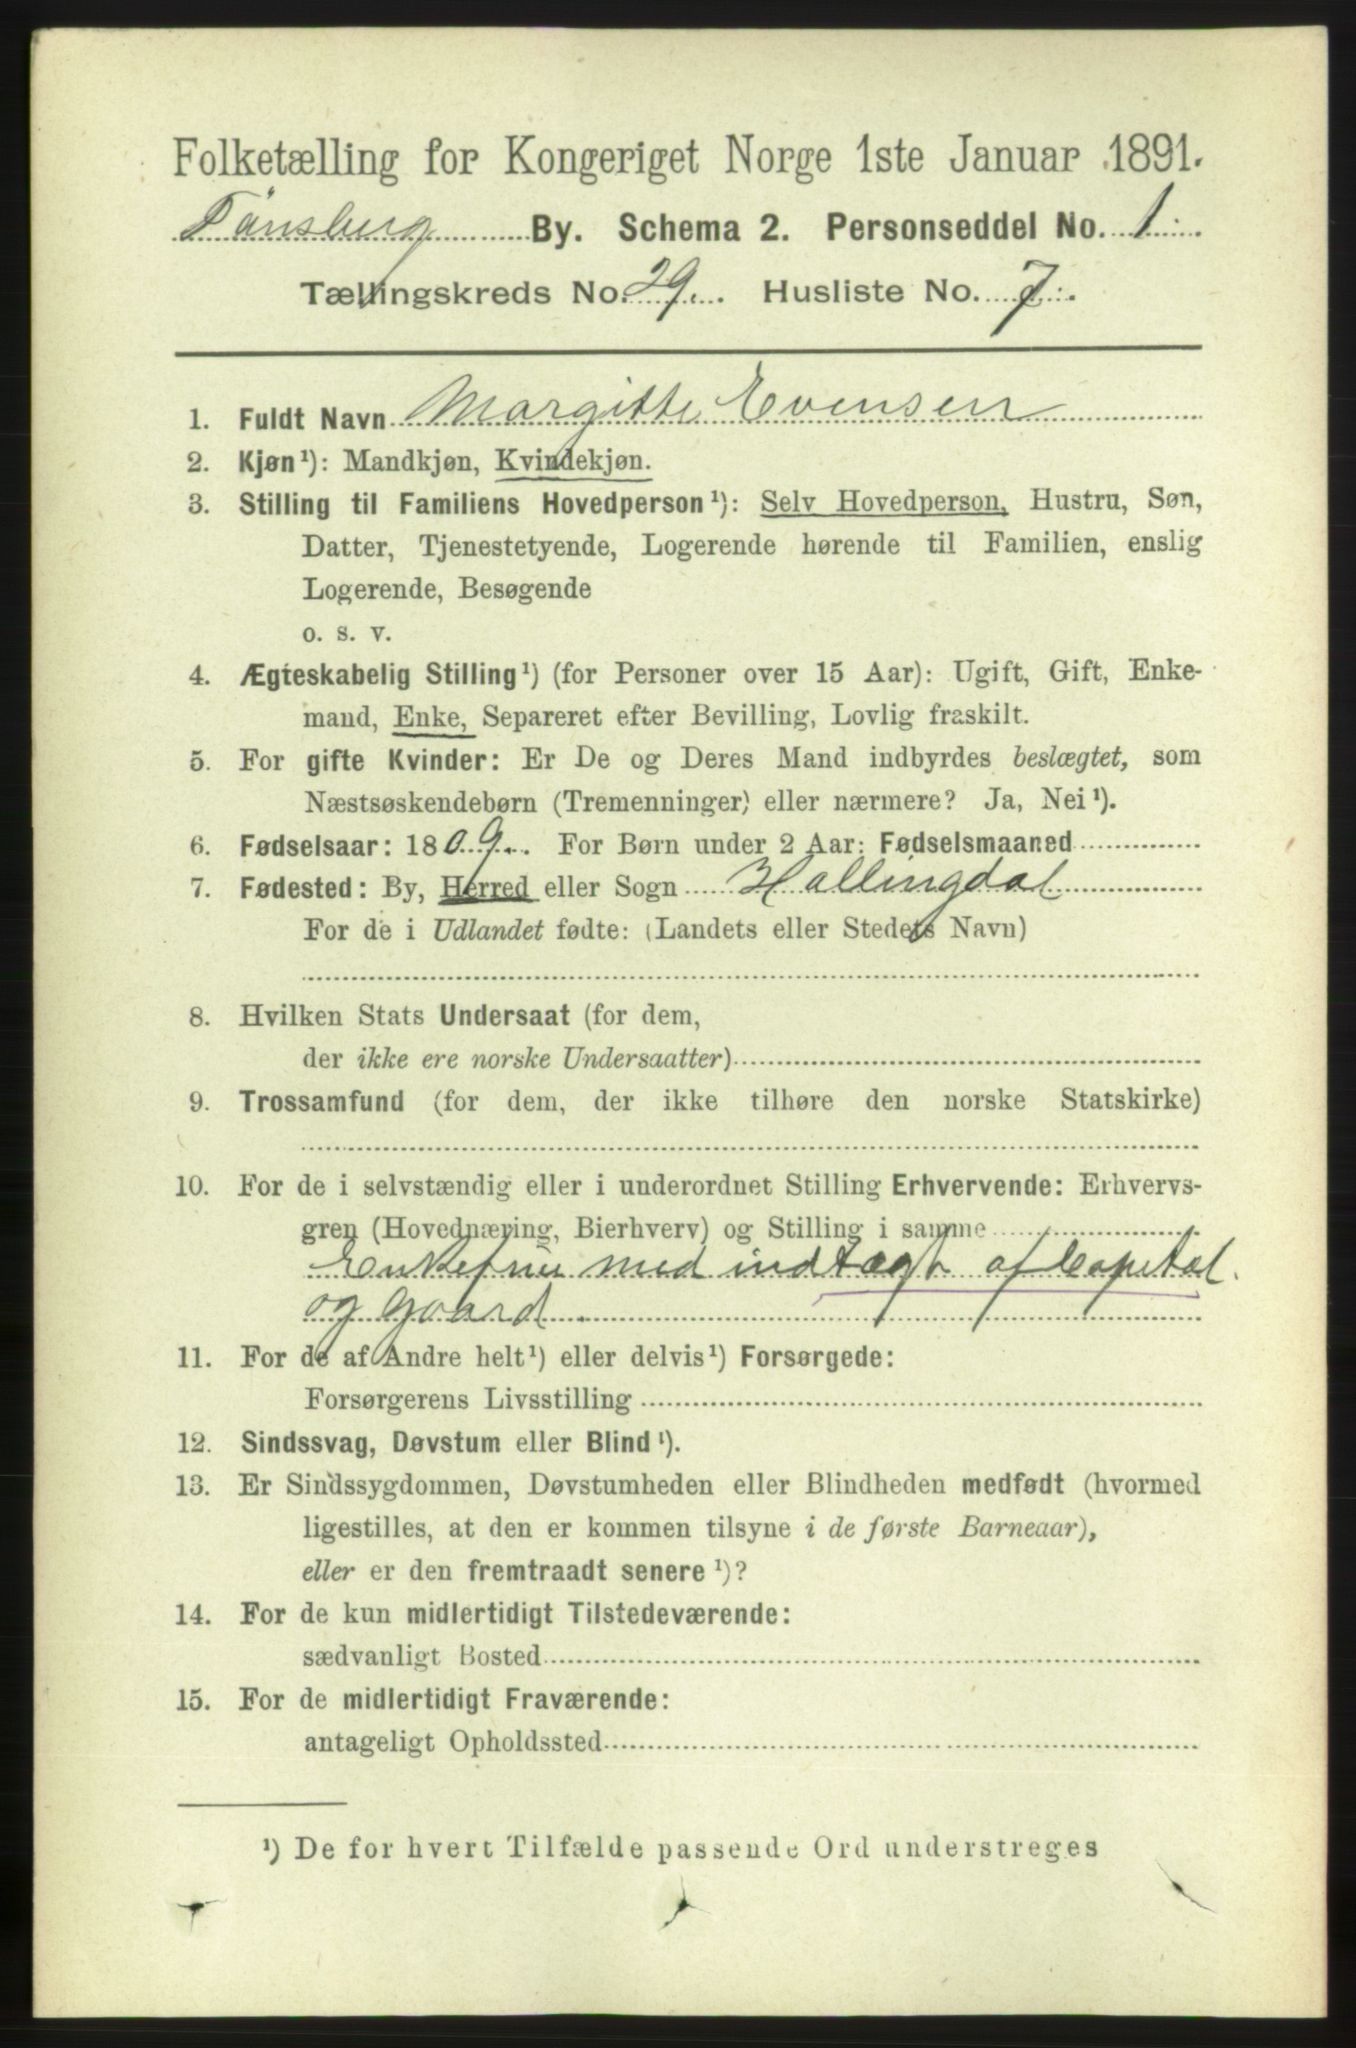 Folketælling for Kongeriget Norge 1ste Januar 1891.
Tønsberg By. Schema 2. Personseddel No. 1.
Tællingskreds No. 29. Husliste No. 7.
1. Fuldt Navn Margitte Evensen
2. Kjøn¹): Mandkjøn, Kvindekjøn.
3. Stilling til Familiens Hovedperson¹): Selv Hovedperson, Hustru, Søn,
Datter, Tjenestetyende, Logerende hørende til Familien, enslig
Logerende, Besøgende
o. s. v.
4. Ægteskabelig Stilling¹) (for Personer over 15 Aar): Ugift, Gift, Enke-
mand, Enke, Separeret efter Bevilling, Lovlig fraskilt.
5. For gifte Kvinder: Er De og Deres Mand indbyrdes beslægtet, som
Næstsøskendebørn (Tremenninger) eller nærmere? Ja, Nei¹).
6. Fødselsaar: 1809. For Børn under 2 Aar: Fødselsmaaned
7. Fødested: By, Herred eller Sogn Hallingdal
For de i Udlandet fødte: (Landets eller Stedets Navn)
8. Hvilken Stats Undersaat (for dem,
der ikke ere norske Undersaatter)
9. Trossamfund (for dem, der ikke tilhøre den norske Statskirke)
10. For de i selvstændig eller i underordnet Stilling Erhvervende: Erhvervs-
gren (Hovednæring, Bierhverv) og Stilling i samme
Enkefrue med indtægt af Capital.
og gaard.
11. For de af Andre helt¹) eller delvis¹) Forsørgede:
Forsørgerens Livsstilling
12. Sindssvag, Døvstum eller Blind¹).
13. Er Sindssygdommen, Døvstumheden eller Blindheden medfødt (hvormed
ligestilles, at den er kommen tilsyne i de første Barneaar),
eller er den fremtraadt senere¹)?
14. For de kun midlertidigt Tilstedeværende:
sædvanligt Bosted
15. For de midlertidigt Fraværende:
antageligt Opholdssted
¹) De for hvert Tilfælde passende Ord understreges